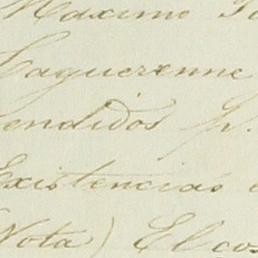 Maximo
Laguerenne
vendidos p.
Existencias
(Nota) El cos